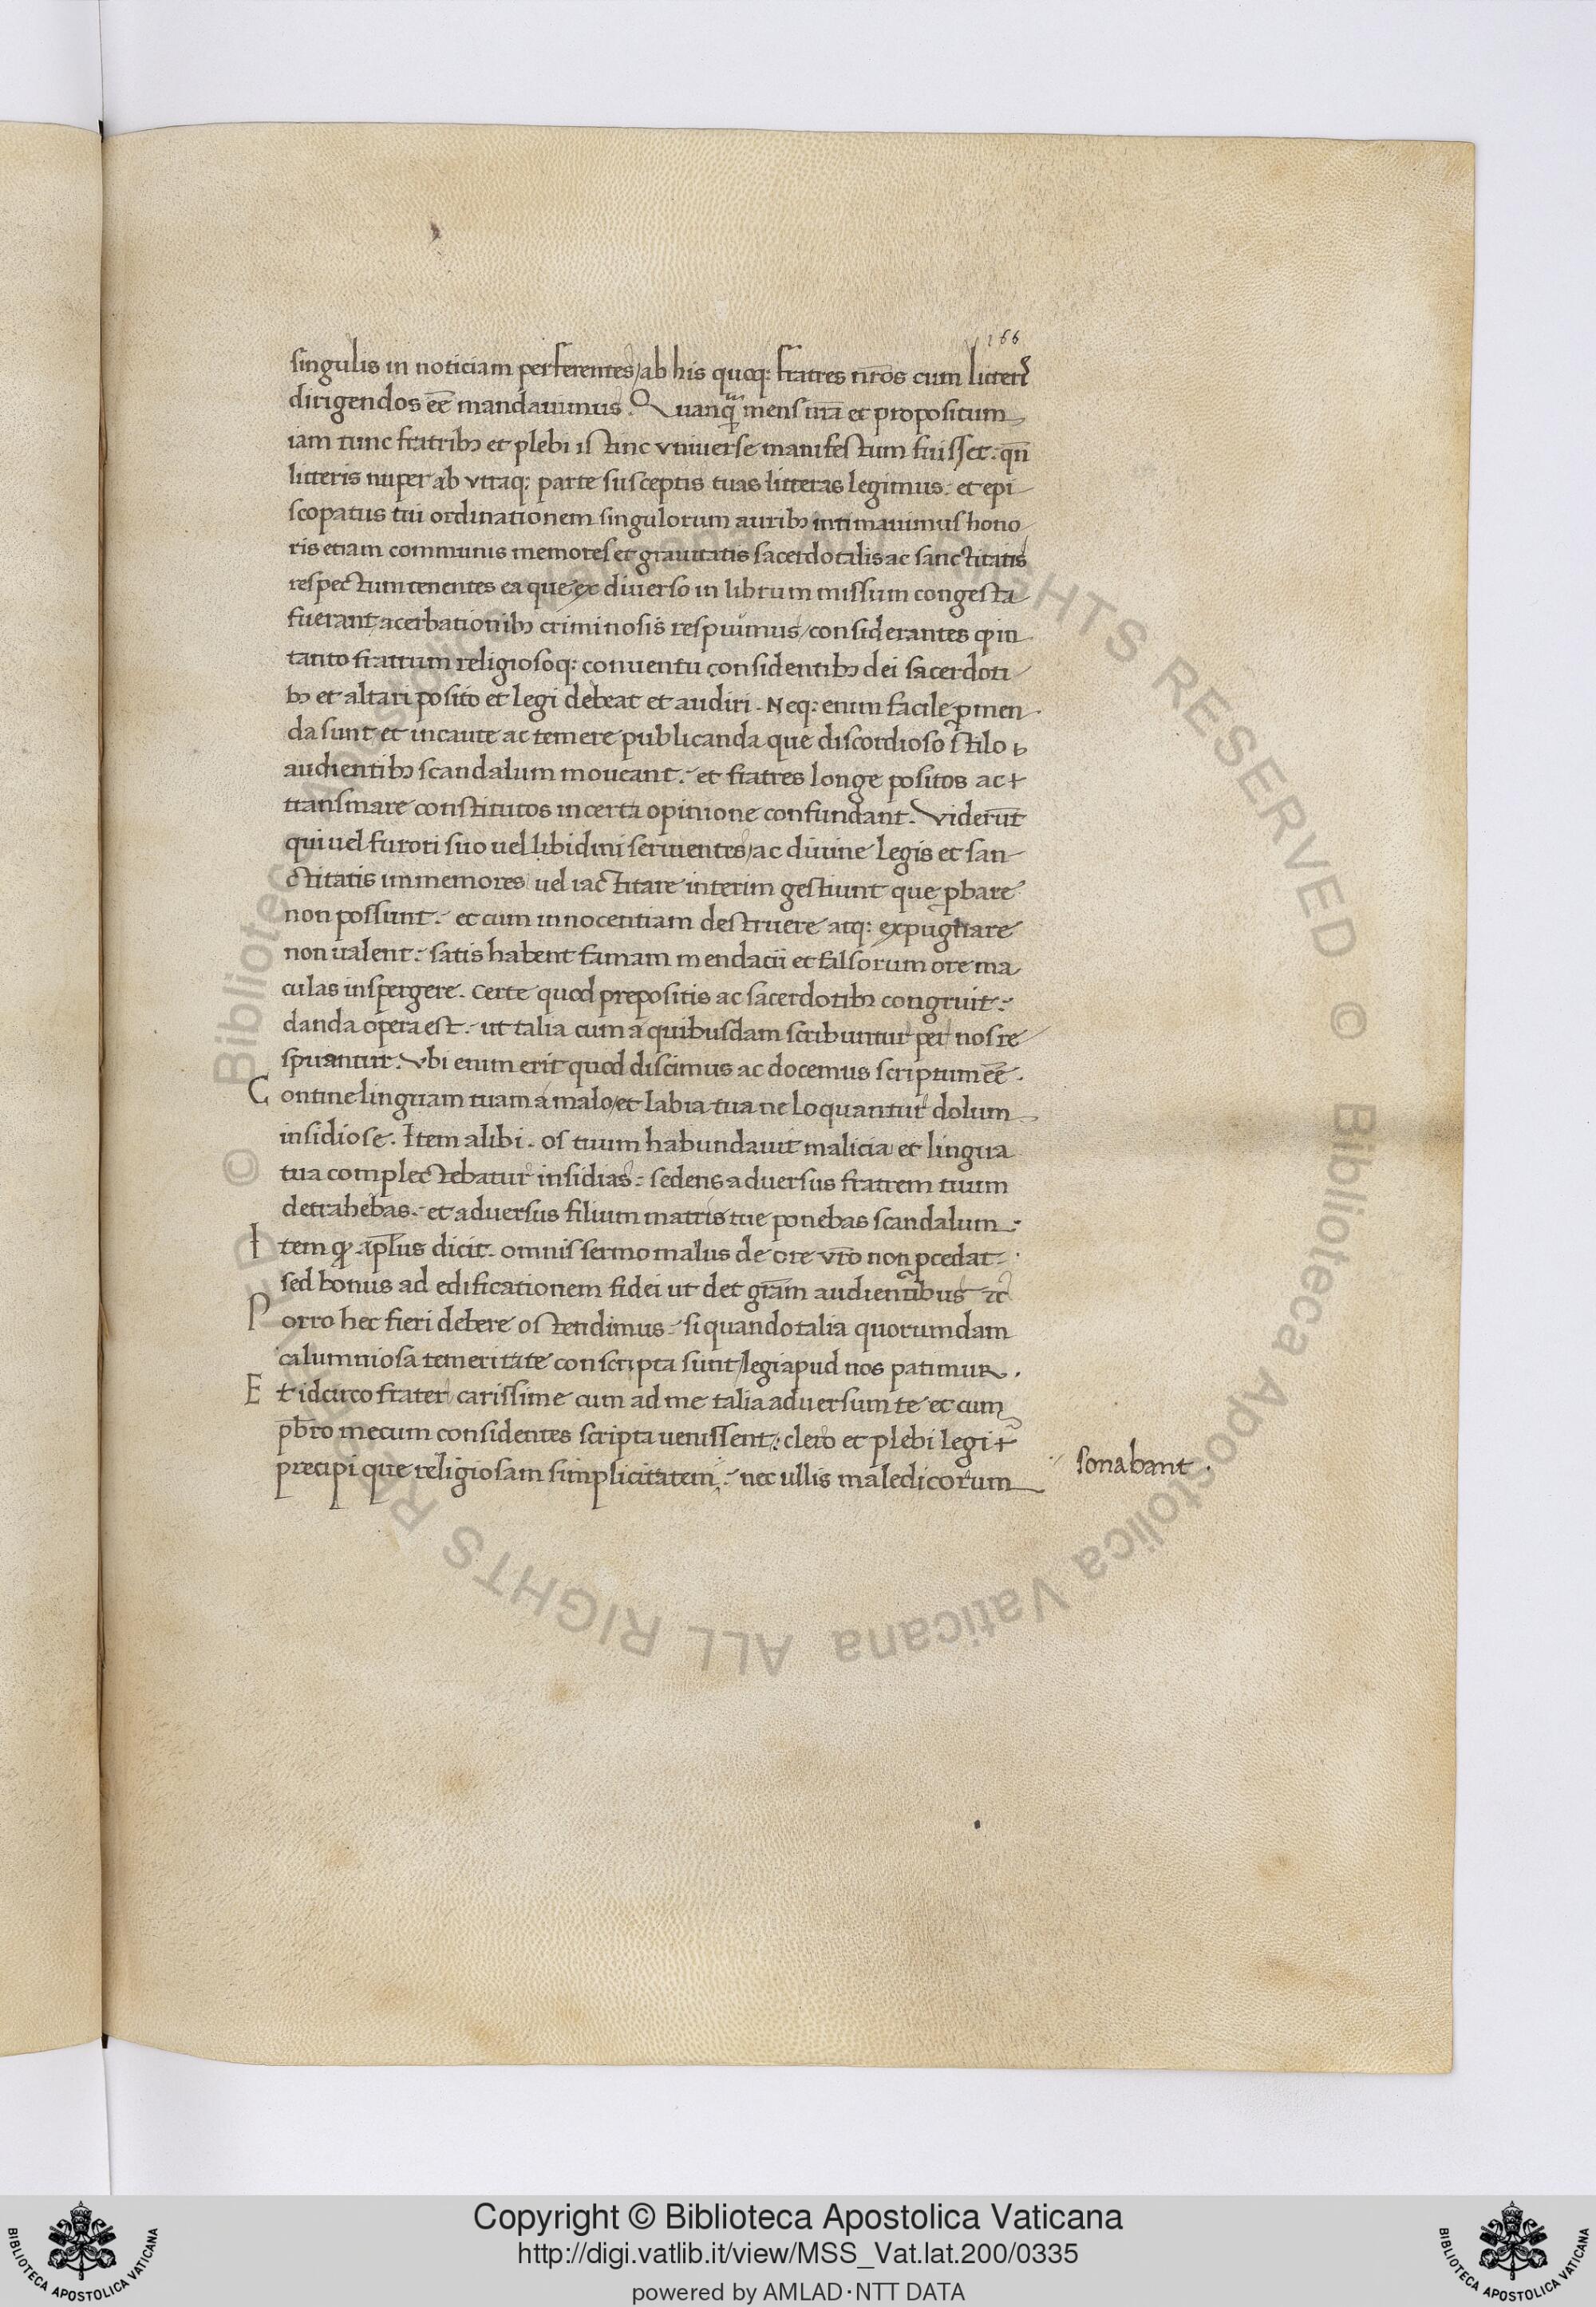 166
singulis in noticiam perferentes / ab his quoq: fratres nr̄os cum litteris
dirigendos eē mandauimus. Quanq̄ mens ura et propositum
iam tunc fratribꝫ et plebi istinc vniuerse manifestum fuisset. qn̄
litteris nuper ab vtraq: parte susceptis tuas litteras legimus. et epi
scopatus tui ordinationem singulorum auribꝫ intimauimus hono
ris etiam communis memores et grauitatis sacerdotalis ac sanctitatis
respectum tenentes ea que ex diuerso in librum missum congesta
fuerant acerbationibꝫ criminosis respuimus / considerantes ꝙ in
tanto fratrum religiosoq: conuentu considentibꝫ dei sacerdoti
bꝫ et altari posito et legi debeat et audiri. Neq: enim facile ꝓmen
da sunt et incaute ac temere publicanda que discordioso stilo
audientibꝫ scandalum moueant. et fratres longe positos ac
transmare constitutos incerta opinione confundant. Viderūt
qui uel furori suo uel libidini seruientes / ac diuine legis et san
ctitatis inmemores uel iactitare interim gestiunt que ꝓbare
non possunt. et cum innocentiam destruere atq: expugnare
non ualent: satis habent famam mendacii et falsorum ore ma
culas inspergere. Certe quod prepositis ac sacerdotibꝫ congruit:
danda opera est. ut talia cum a quibusdam scribuntur per nos re
spuantur. Vbi enim erit quod discimus ac docemus scriptum eē.
Contine linguam tuam a malo / et labia tua ne loquantur dolum
insidiose. Item alibi. os tuum habundauit malicia et lingua
tua complectebatur insidias: sedens aduersus fratrem tuum
detrahebas. et aduersus filium matris tue ponebas scandalum.
Item ꝙ apl̄us dicit. omnis sermo malus de ore vr̄o non ꝓcedat.
sed bonus ad edificationem fidei ut det gr̄am audientibus
Porro hec fieri debere ostendimus. si quando talia quorumdam
calumniosa temeritate conscripta sunt / legi apud nos patimur.
Et idcirco frater carissime cum ad me talia aduersum te et cum
pb̄ro mecum considentes scripta uenissent: clero et plebi legi
precipi que religiosam simplicitatem. nec ullis maledicorum
sonabant.
Copyright © Biblioteca Apostolica Vaticana
http://digi.vatlib.it/view/MSS_Vat.lat.200/0335
powered by AMLAD·NTT DATA
BIBLIOTECA APOSTOLICA VATICANA
BIBLIOTECA APOSTOLICA VATICANA
© Biblioteca Apostolica Vaticana ALL RIGHTS RESERVED
© Biblioteca Apostolica Vaticana ALL RIGHTS RESERVED